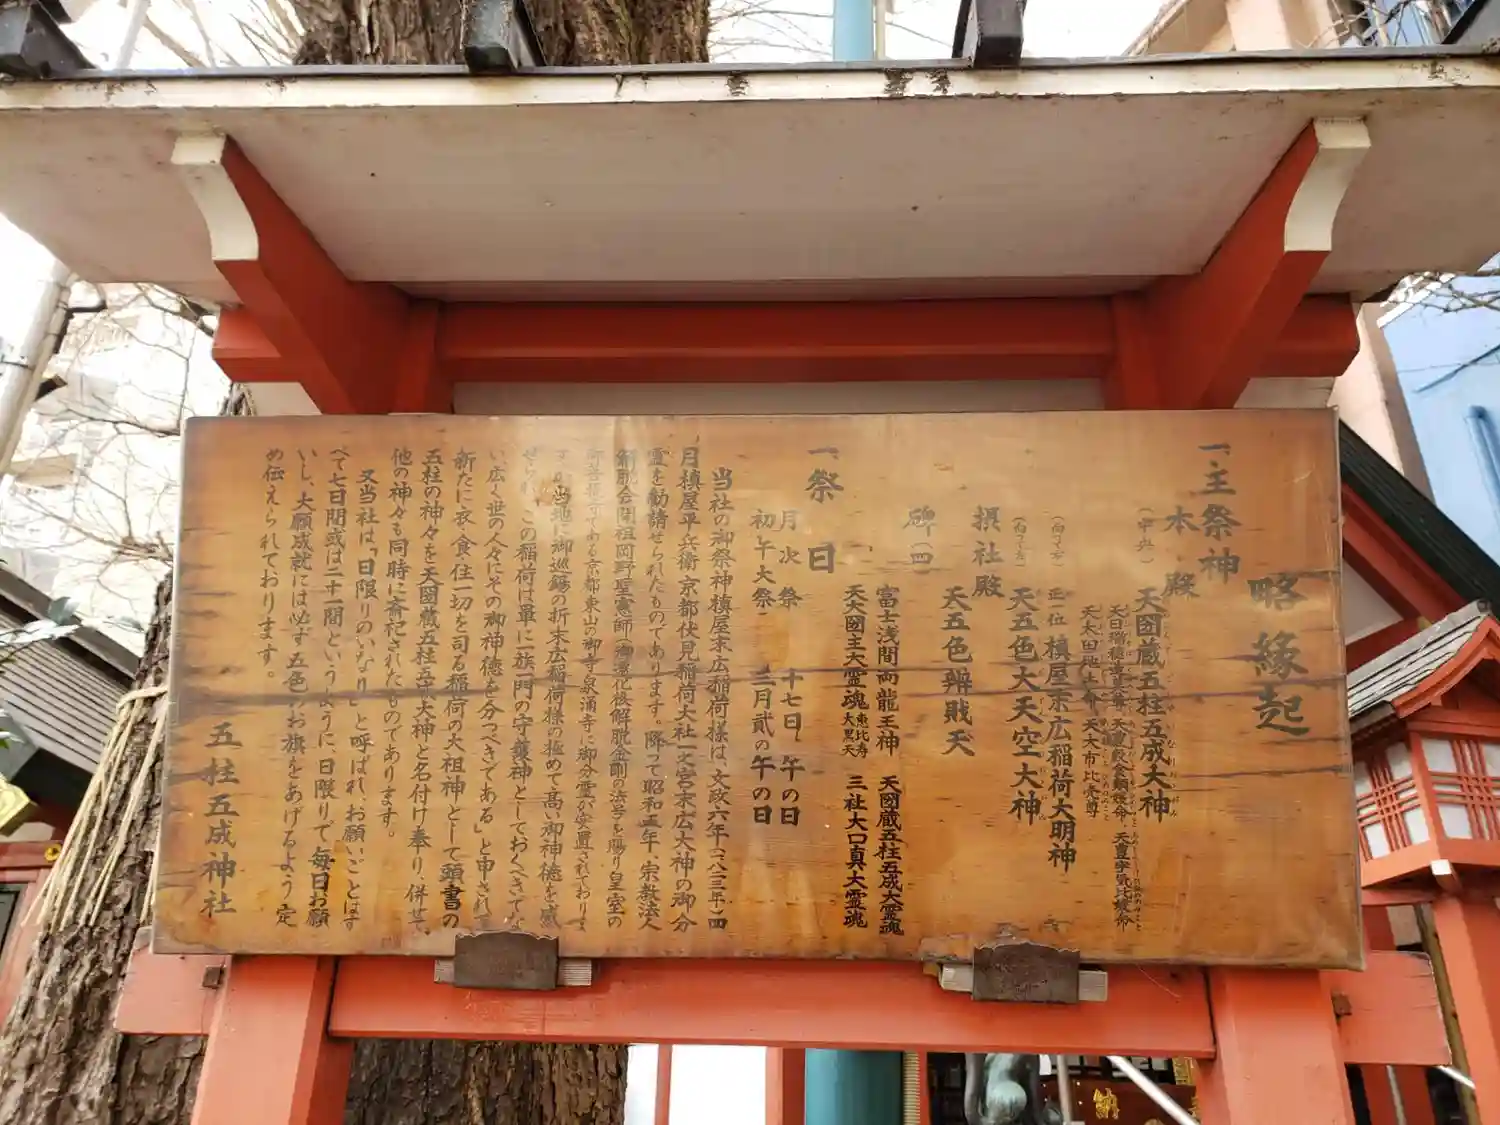 略緣起
一、主祭神
本殿
(中央)
天國蔵五柱五成大神
天太田地主命 天大市比売尊
正一位 槙屋末広稲荷大明神
天五色大天空大神
摂社殿
天五色辨戝天
碑(四)
富士浅間両龍王神 天國蔵五柱五成大霊魂
天大國主大霊魂 恵比寿 大黒天 三社大口真大霊魂
一、祭日
月次祭 十七日、午の日
初午大祭 三月貳の午の日
当社の御祭神槙屋末広稲荷様は、文政六年(一八二三年)四
月槙屋平兵衛京都伏見稲荷大社一之宮末広大神の御分
霊を勧請せられたものであります。降って昭和五年、宗教法人
解脱会開祖岡野聖憲師(御遷化後解脱金剛の法号を賜り皇室の
御菩提寺である京都東山の御寺泉涌寺に御分霊が安置されております
当地に御巡錫の折末広稲荷様の極めて高い御神徳を感
ぜられ、この稲荷は単に一族一門の守護神としておくべきでな
い、広く世の人々にその御神徳を分つべきである」と申されて
新たに衣、食、住一切を司る稲荷の大祖神として頭書の
五柱の神々を天國蔵五柱五成大神と名付け奉り、併せて
他の神々も同時に斎祀されたものであります。
又当社は「日限りのいなり」と呼ばれ、お願いごとはす
べて七日間或は二十一間というように、日限りて毎日お願
いし、大願成就には必ず五色のお旗をあげるよう定
め伝えられております。
五柱五成神社